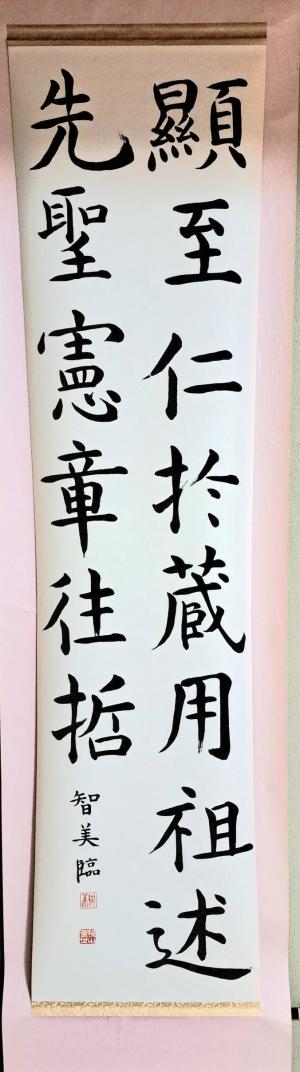 顯至仁於蔵用祖述
先聖憲章往哲
智美臨